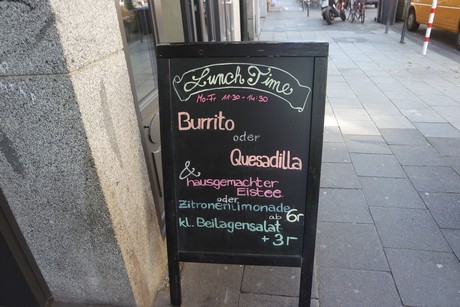 Lunch Time
Mo-Fr 11:30-14:30
Burrito
oder
Quesadilla
& hausgemachter
Eistee
oder
Zitronenlimonade
ab 6r
kl. Beilagensalat
+ 3r